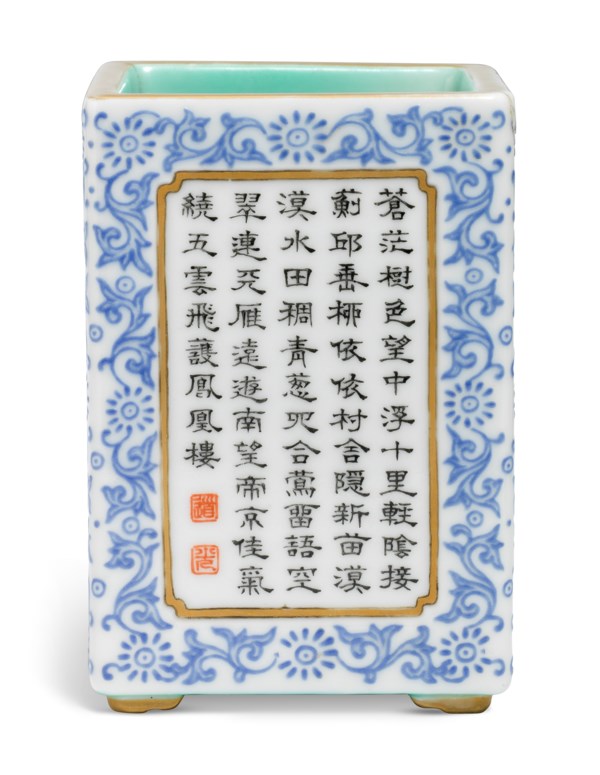 蒼茫樹色望中浮十里輕陰接
薊邱垂栁依依村舍隱新苗漠
漠水田稠青葱四合鶯留語空
翠連天雁遠遊南望帝京佳氣
繞五雲飛護鳳凰樓
道
光